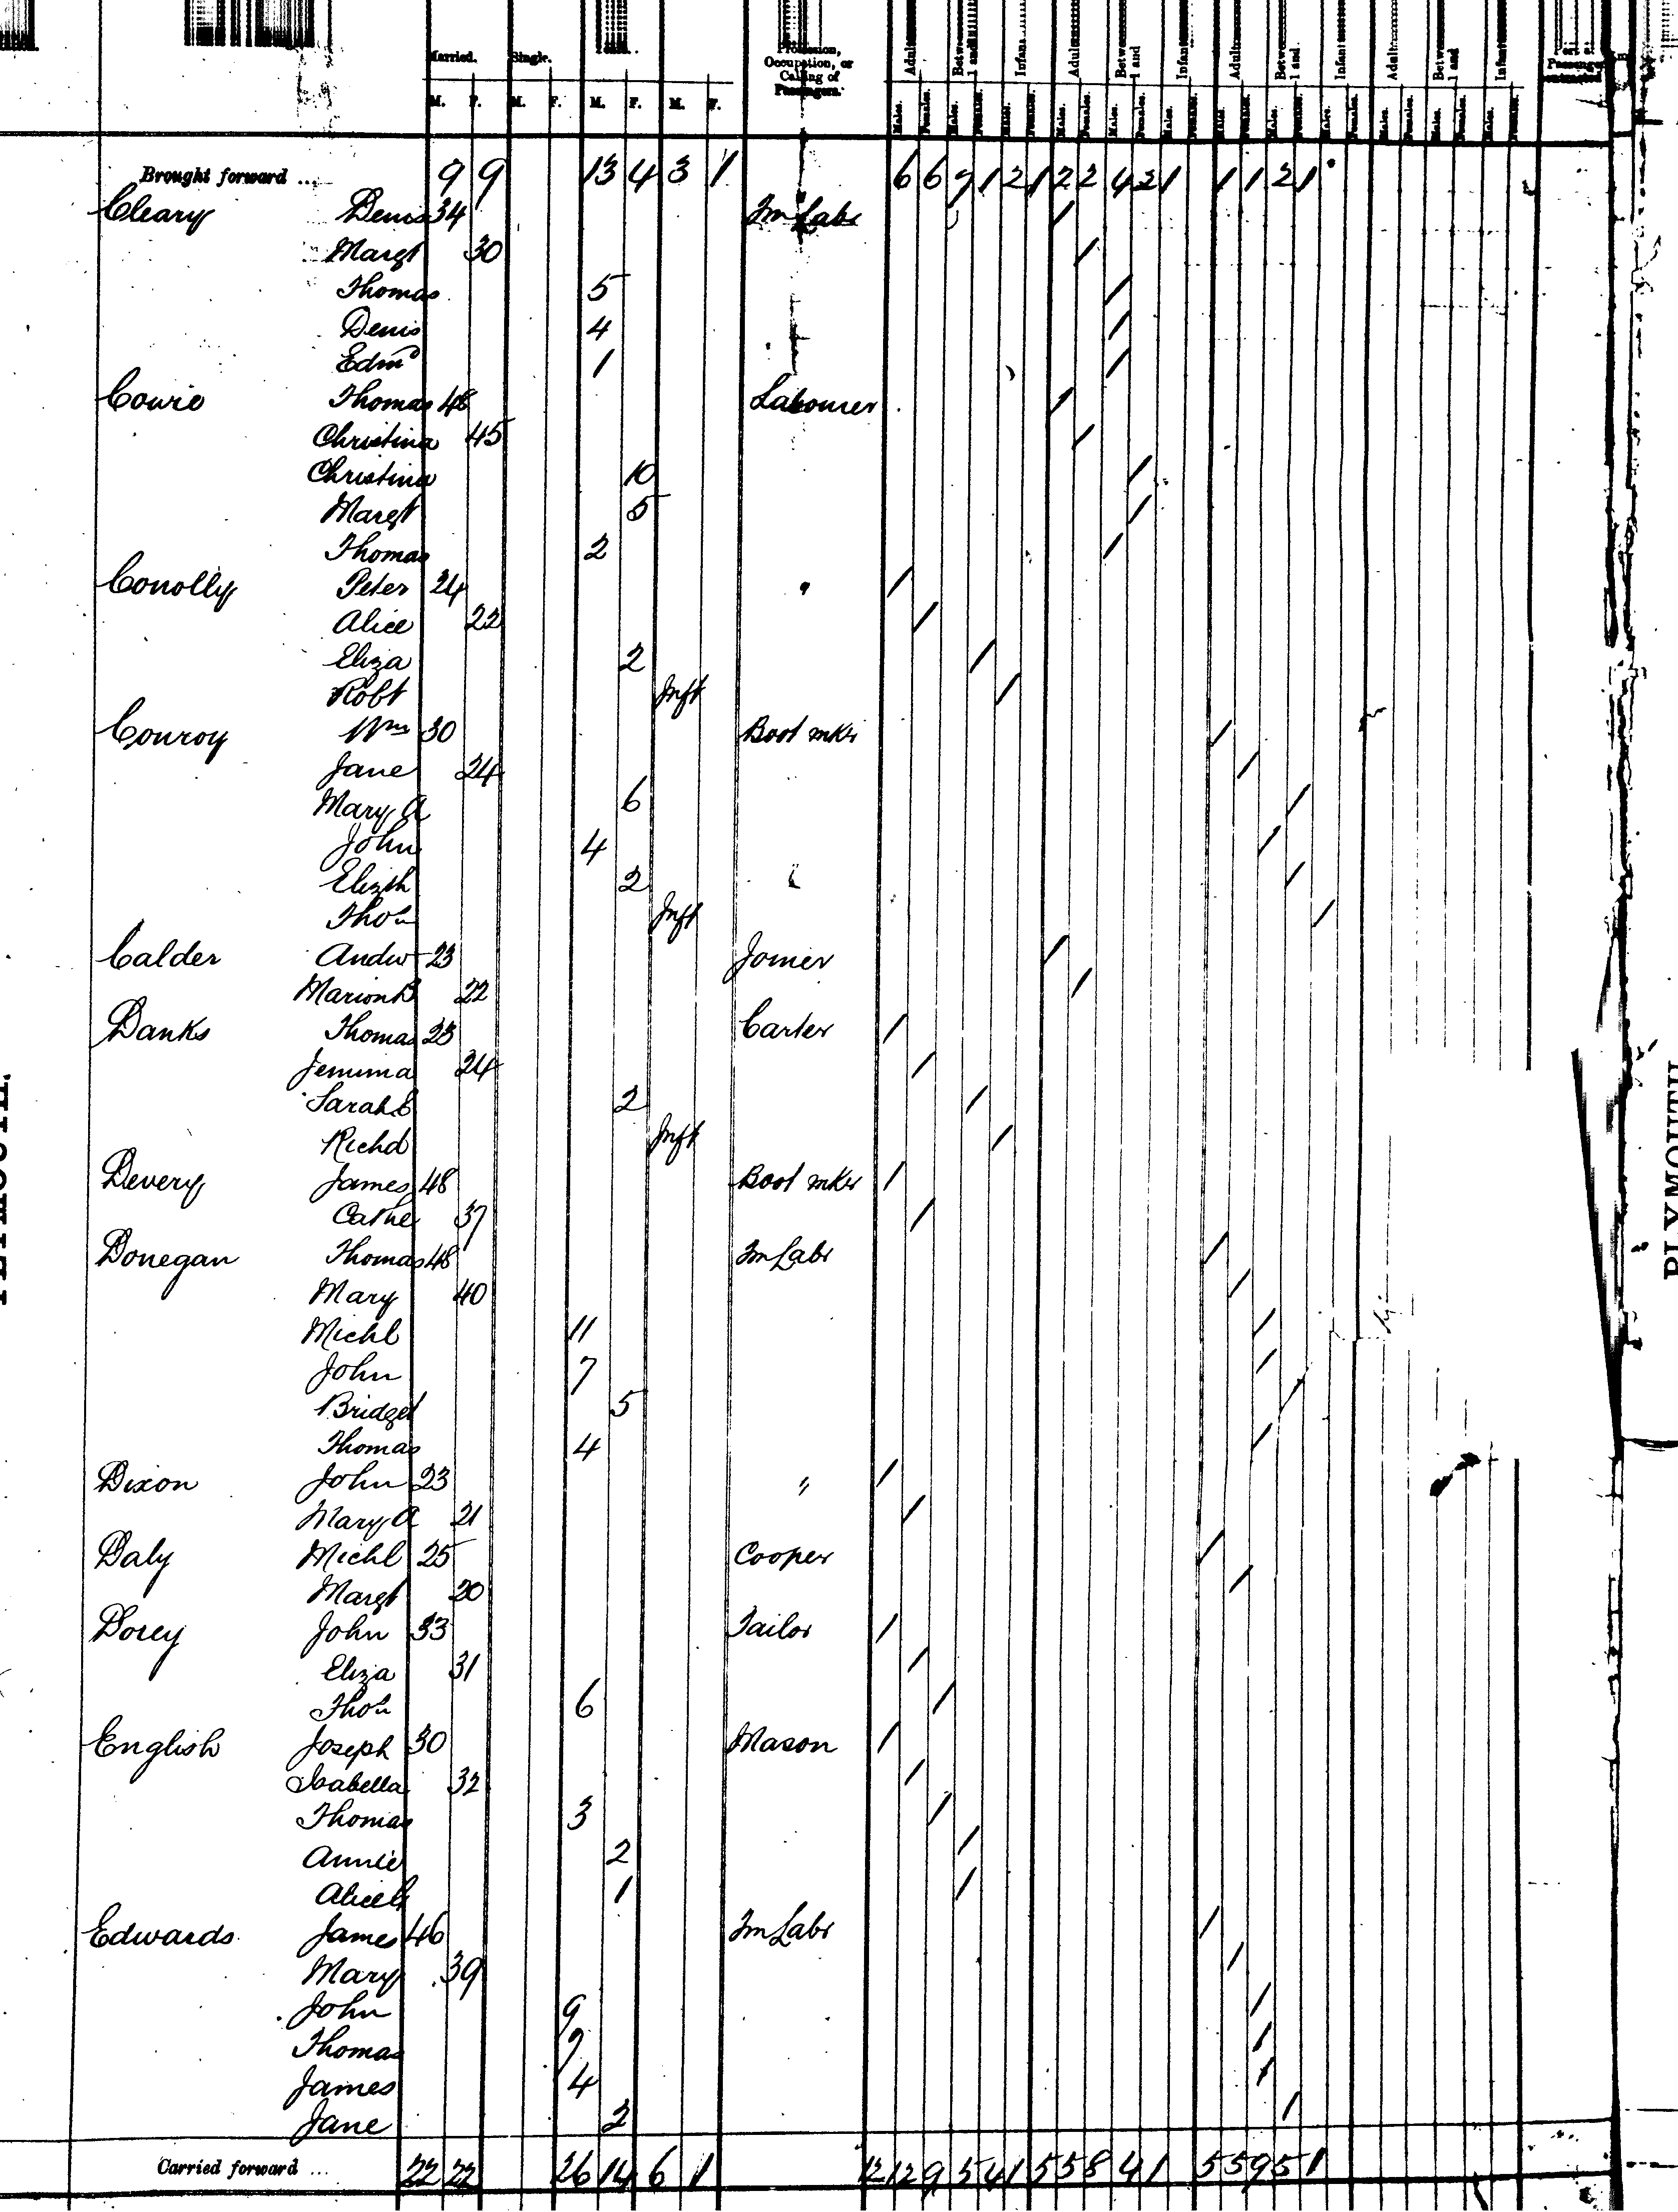 Married. Single.
Profession, Occupation, or Calling of Passengers.
Adults Betw 1 and Infants Adults Betw 1 and Infants Adults Betw 1 and Infants Adults Betw 1 and Infants
M. F. M. F. M. F. M. F. Males. Females. Males. Females. Males. Females. Males. Females. Males. Females. Males. Females. Males. Females. Males. Females. Males. Females. Males. Females. Males. Females. Males. Females.
Brought forward ... 9 9 13 4 3 1 6 6 7 1 2 1 2 2 4 2 1 1 1 2 1
Cleary Denis 34 Fm Labr /
Margt 30 /
Thomas 5 /
Denis 4 /
Edmd 1 /
Cowie Thomas 48 Labourer /
Christina 45 /
Christina 10 /
Margt 5 /
Thomas 2 /
Conolly Peter 24 " /
Alice 22 /
Eliza 2 /
Robt Inft /
Conroy Wm 30 Boot mkr /
Jane 24 /
Mary A 6 /
John 4 /
Elizth 2 /
Thos Inft /
Calder Andw 23 Joiner /
Marion B 22 /
Danks Thomas 23 Carter /
Jemima 24 /
Sarah E 2 /
Richd Inft /
Devery James 48 Boot mkr /
Cathe 37 /
Donegan Thomas 48 Fm Labr /
Mary 40 /
Michl 11 /
John 7 /
Bridget 5 /
Thomas 4 /
Dixon John 23 " /
Mary A 21 /
Daly Michl 25 Cooper /
Margt 20 /
Dorey John 33 Tailor /
Eliza 31 /
Thos 6 /
English Joseph 30 Mason /
Isabella 32 /
Thomas 3 /
Annie 2 /
Alice 1 /
Edwards James 46 Fm Labr /
Mary 39 /
John 9 /
Thomas 7 /
James 4 /
Jane 2 /
Carried forward ... 22 22 26 14 6 1 12 12 9 5 4 1 5 5 8 4 1 5 5 9 5 1
PLYMOUTH.
PLYMOUTH